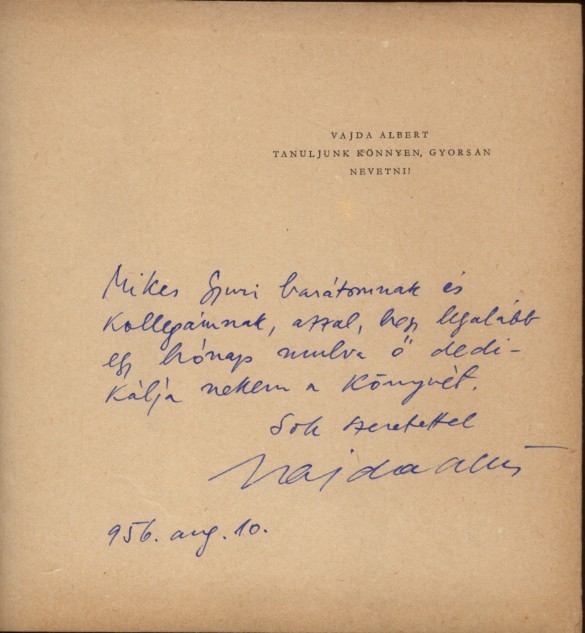 VAJDA ALBERT
TANULJUNK KÖNNYEN, GYORSAN
NEVETNI!
Mikes Gyuri barátomnak és
kollegámnak, azzal, hogy legalább
egy hónap mulva ő dedi-
kálja nekem a könyvét.
Sok szeretettel
Vajda Albert
956. aug. 10.